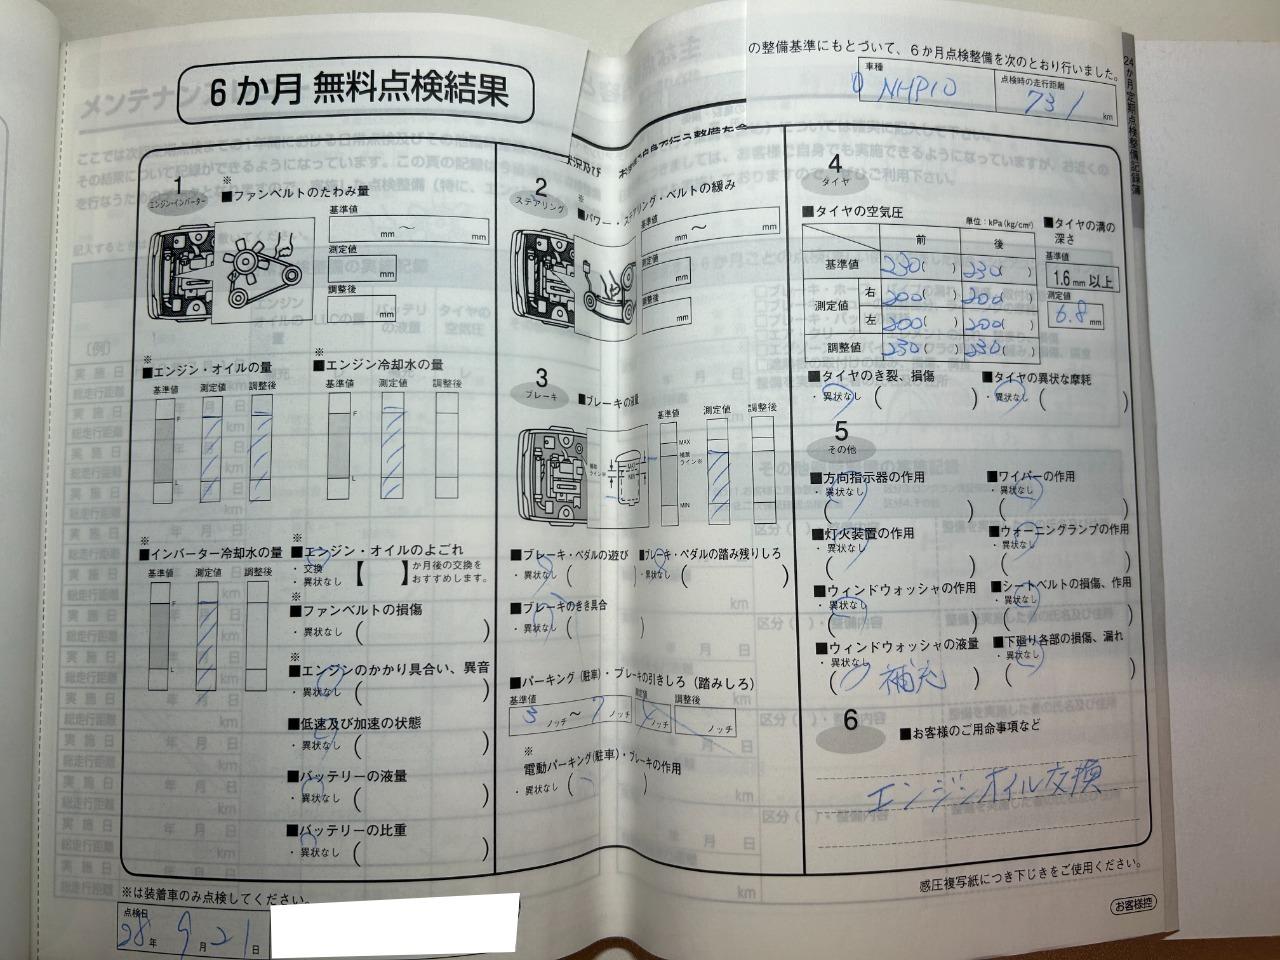 の整備基準にもとづいて、6か月点検整備を次のとおり行いました。
6か月 無料点検結果
車種
NHP10
点検時の走行距離
731 km
24か月定期点検整備記録簿
1
エンジン・インバーター
※
■ファンベルトのたわみ量
基準値
mm ～ mm
測定値
mm
調整後
mm
※
■エンジン・オイルの量
基準値 測定値 調整後
F
L
※
■エンジン冷却水の量
基準値 測定値 調整後
F
L
※
■インバーター冷却水の量
基準値 測定値 調整後
F
L
※
■エンジン・オイルのよごれ
・交換
・異状なし
【 】か月後の交換をおすすめします。
※
■ファンベルトの損傷
・異状なし ( )
※
■エンジンのかかり具合い、異音
・異状なし ( )
■低速及び加速の状態
・異状なし ( )
■バッテリーの液量
・異状なし ( )
■バッテリーの比重
・異状なし ( )
2
ステアリング
※
■パワー・ステアリング・ベルトの緩み
基準値
mm ～ mm
測定値
mm
調整後
mm
3
ブレーキ
■ブレーキの液量
基準値 測定値 調整後
MAX
補充ライン※
MIN
■ブレーキ・ペダルの遊び
・異状なし ( )
■ブレーキ・ペダルの踏み残りしろ
・異状なし ( )
■ブレーキのきき具合
・異状なし ( )
■パーキング(駐車)・ブレーキの引きしろ(踏みしろ)
基準値 測定値 調整後
3 ノッチ ～ 7 ノッチ ノッチ ノッチ
※
電動パーキング(駐車)・ブレーキの作用
・異状なし ( )
4
タイヤ
■タイヤの空気圧
単位：kPa(kg/cm²)
前 後
基準値 230( ) 230( )
測定値 右 200( ) 200( )
左 200( ) 200( )
調整値 230( ) 230( )
■タイヤの溝の深さ
基準値
1.6mm 以上
測定値
6.8 mm
■タイヤのき裂、損傷
・異状なし ( )
■タイヤの異状な摩耗
・異状なし ( )
5
その他
■方向指示器の作用
・異状なし
( )
■ワイパーの作用
・異状なし
( )
■灯火装置の作用
・異状なし
( )
■ウォーニングランプの作用
・異状なし
( )
■ウィンドウォッシャの作用
・異状なし
( )
■シートベルトの損傷、作用
・異状なし
( )
■ウィンドウォッシャの液量
・異状なし
( 補充 )
■下廻り各部の損傷、漏れ
・異状なし
( )
6
■お客様のご用命事項など
エンジンオイル交換
※は装着車のみ点検してください。
点検日
28年 9月 21日
感圧複写紙につき下じきをご使用ください。
お客様控